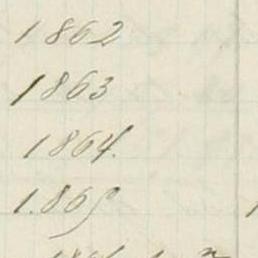 1862
1863
1864.
1.865